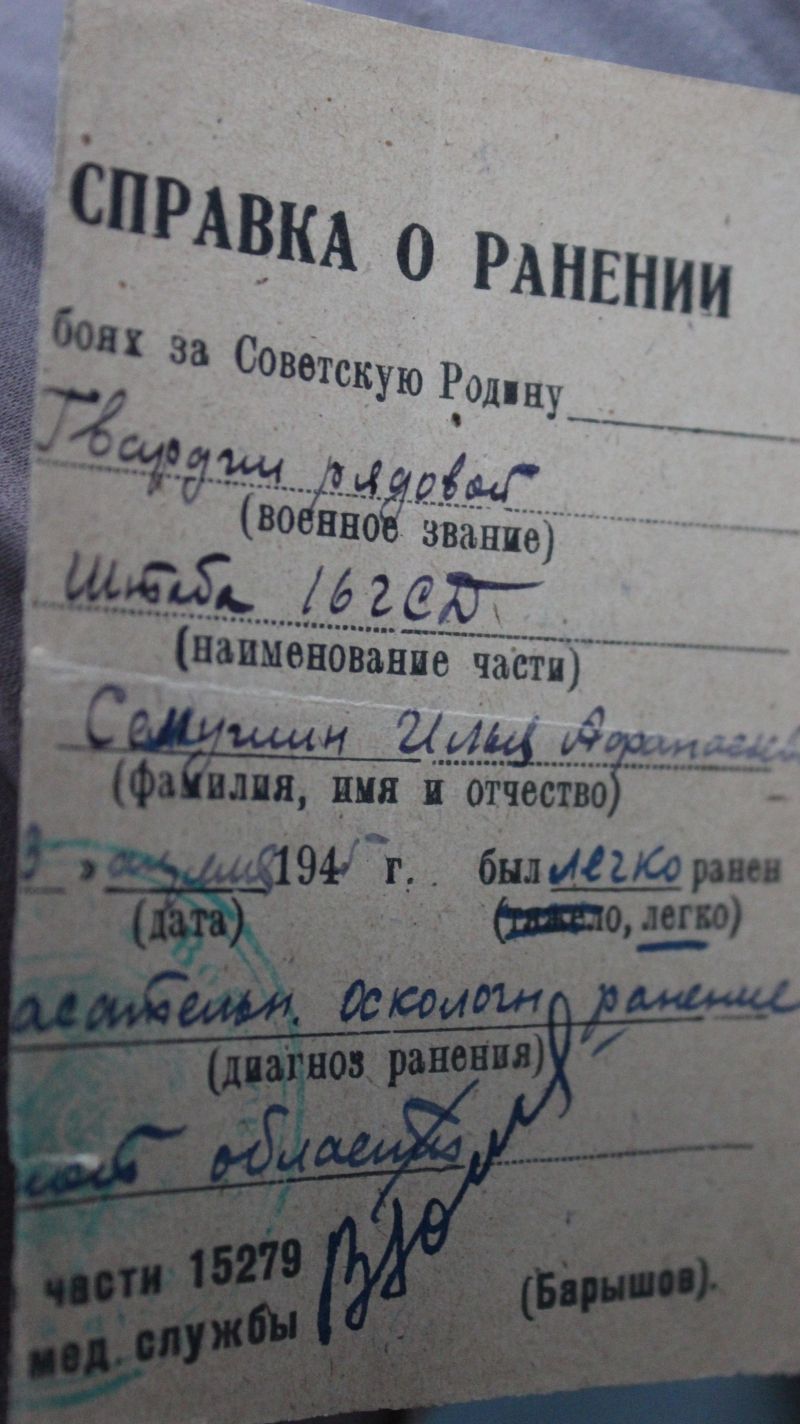 СПРАВКА О РАНЕНИИ
боях за Советскую Родину
Гвардии рядовой
(военное звание)
Штаба 16 гСД
(наименование части)
Семушин Илья
(фамилия, имя и отчество)
3 » апреля 1945 г. был легко ранен
(дата) (тяжело, легко)
асательн. осколочн ранение
(диагноз ранения)
ной области
части 15279
мед. службы (Барышов).